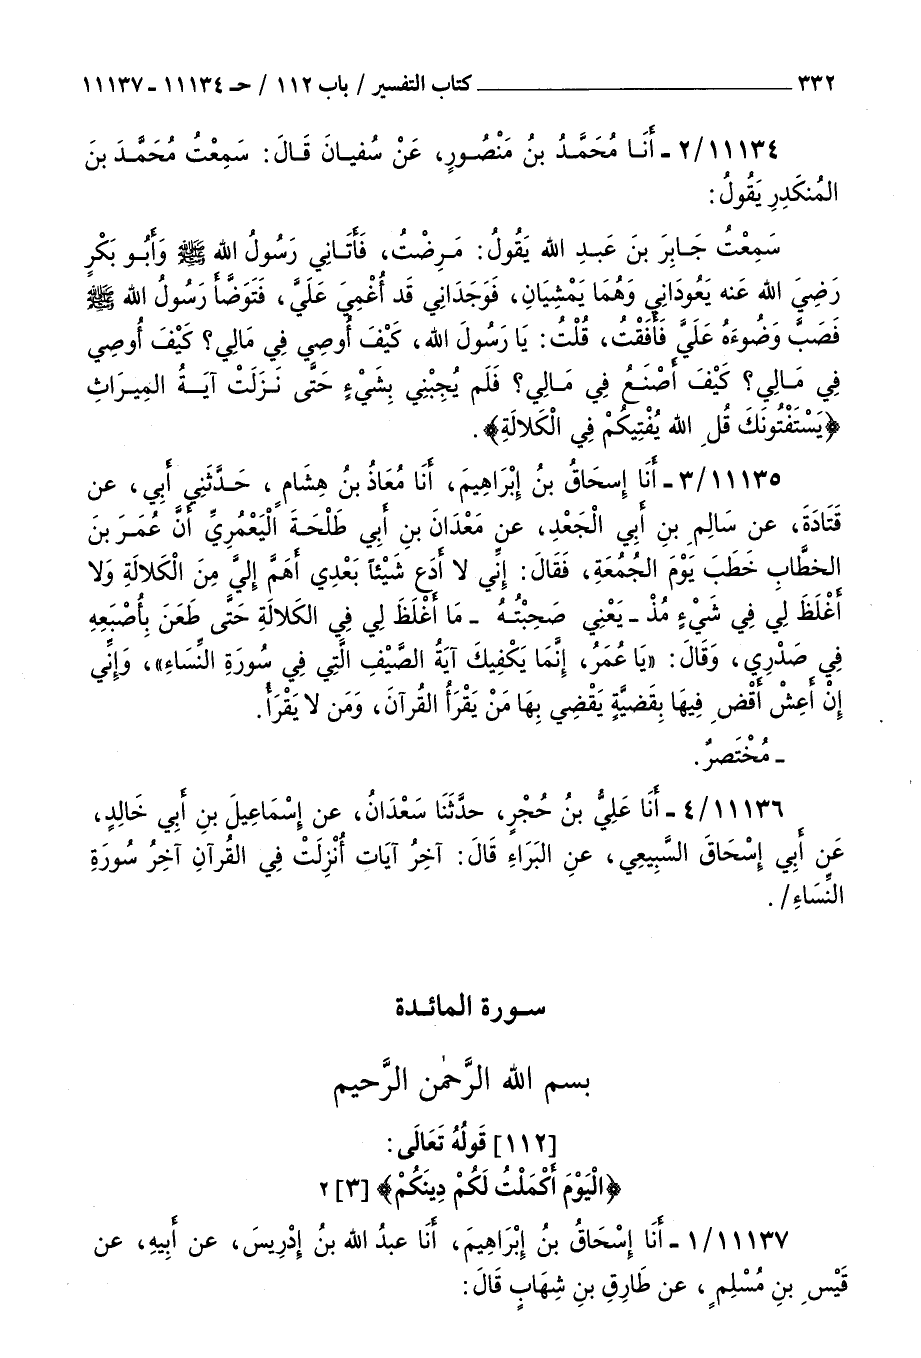 ٣٣٢ ــــــــــــــــــــــــــــــــــ كتاب التفسير / باب ١١٢ / حـ ١١١٣٤ - ١١١٣٧
٢/١١١٣٤ - أَنَا مُحَمَّدُ بنُ مَنْصُورٍ، عَنْ سُفيانَ قَالَ: سَمِعْتُ مُحَمَّدَ بنَ
المُنكَدِرِ يَقُولُ:
سَمِعْتُ جَابِرَ بنَ عَبدِ الله يَقُولُ: مَرِضْتُ، فَأَتَانِي رَسُولُ الله ﷺ وَأَبُو بَكْرٍ
رَضِيَ الله عَنه يَعُودَانِي وَهُمَا يَمْشِيَانِ، فَوَجَدَانِي قَد أُغْمِيَ عَلَيَّ، فَتَوَضَّأَ رَسُولُ الله ﷺ
فَصَبَّ وَضُوءَهُ عَلَيَّ فَأَفَقْتُ، قُلْتُ: يَا رَسُولَ الله، كَيْفَ أُوصِي فِي مَالِي؟ كَيْفَ أُوصِي
فِي مَالِي؟ كَيْفَ أَصْنَعُ فِي مَالِي؟ فَلَم يُجِبْنِي بِشَيْءٍ حَتَّى نَزَلَتْ آيَةُ المِيرَاثِ
﴿يَسْتَفْتُونَكَ قُلِ الله يُفْتِيكُمْ فِي الْكَلالَةِ﴾.
٣/١١١٣٥ - أَنَا إِسحَاقُ بنُ إِبْرَاهِيمَ، أَنَا مُعَاذُ بنُ هِشَامٍ، حَدَّثَنِي أَبِي، عن
قَتَادَةَ، عن سَالِمِ بنِ أَبِي الْجَعْدِ، عن مَعْدَانَ بنِ أَبِي طَلْحَةَ الْيَعْمُرِيِّ أَنَّ عُمَرَ بنَ
الخطَّابِ خَطَبَ يَوْمَ الجُمُعَةِ، فَقَالَ: إِنِّي لا أَدَع شَيْئاً بَعْدِي أَهَمَّ إِلَيَّ مِنَ الْكَلالَةِ وَلا
أَغْلَظَ لِي فِي شَيْءٍ مُذْ - يَعْنِي صَحِبْتُهُ - مَا أَغْلَظَ لِي فِي الكَلالَةِ حَتَّى طَعَنَ بِأُصْبَعِهِ
فِي صَدْرِي، وَقَالَ: «يَا عُمَرُ، إِنَّمَا يَكْفِيكَ آيَةُ الصَّيْفِ الَّتِي فِي سُورَةِ النِّسَاءِ»، وَإِنِّي
إِنْ أَعِشْ أَقْضِ فِيهَا بِقَضِيَّةٍ يَقْضِي بِهَا مَنْ يَقْرَأُ القُرآنَ، وَمَن لا يَقْرَأُ.
- مُخْتَصَرٌ.
٤/١١١٣٦ - أَنَا عَلِيُّ بنُ حُجْرٍ، حدَّثَنَا سَعْدَانُ، عن إِسْمَاعِيلَ بنِ أَبِي خَالِدٍ،
عَن أَبِي إِسْحَاقَ السَّبِيعِي، عن البَرَاءِ قَالَ: آخِرُ آيَات أُنْزِلَتْ فِي القُرآنِ آخِرُ سُورَةِ
النِّسَاءِ/.
سورة المائدة
بسم الله الرَّحمٰن الرَّحيم
[١١٢] قَولُهُ تَعَالَى:
﴿الْيَوْمَ أَكْمَلْتُ لَكُمْ دِينَكُمْ﴾ [٣] ٢
١/١١١٣٧ - أَنَا إِسْحَاقُ بنُ إِبْرَاهِيمَ، أَنَا عبدُ الله بنُ إِدْرِيسَ، عن أَبِيهِ، عن
قَيْسِ بنِ مُسْلِمٍ، عن طَارِقِ بنِ شِهَابٍ قَالَ: